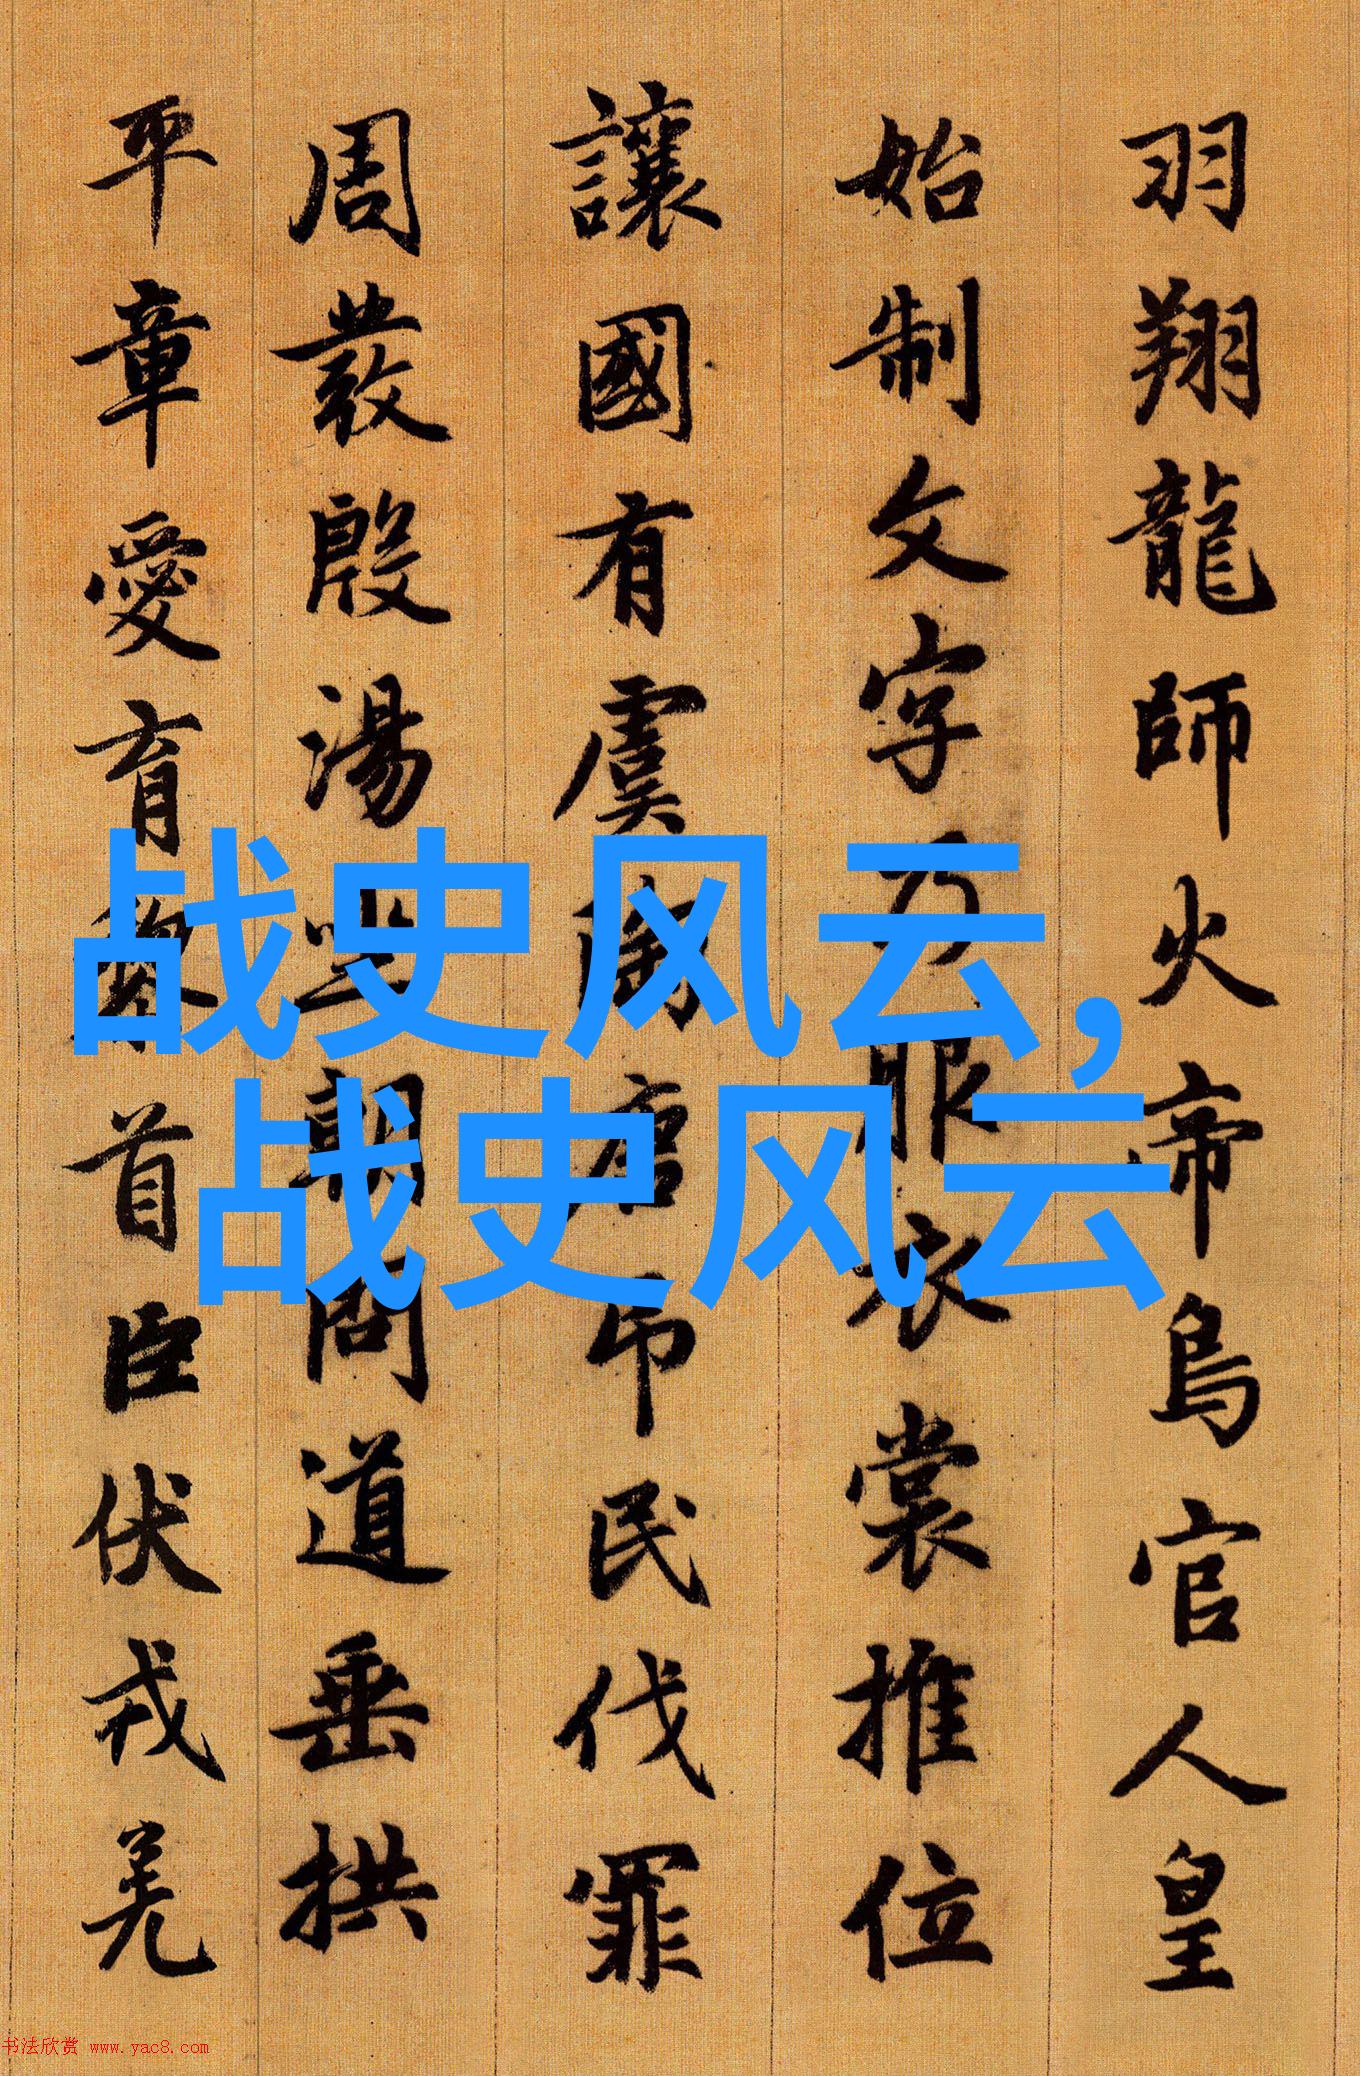 羽翔龍師火帝鳥官人皇
始制文字乃服衣裳推位
讓國有虞陶唐吊民伐罪
周發殷湯坐朝問道垂拱
平章愛育黎首臣伏戎羌
战史风云,
战史风云
书法欣赏 www.yac8.com